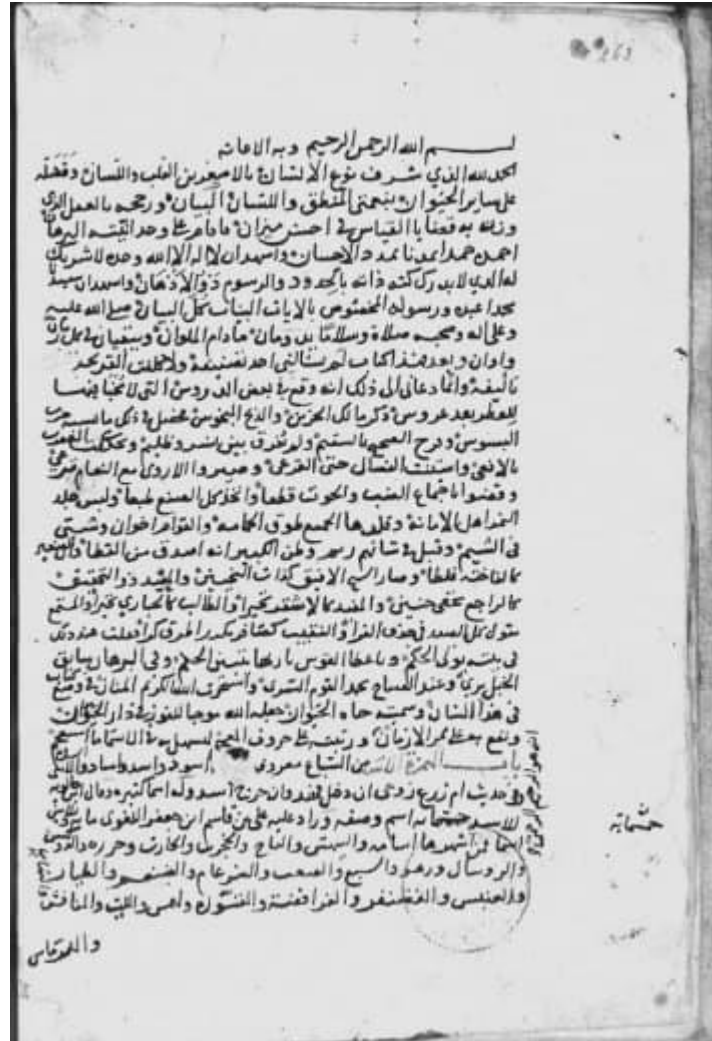 163
بسم الله الرحمن الرحيم وبه الاعانة
الحمد لله الذي شرف نوع الانسان بالاصغرين القلب واللسان وفضله
على ساير الحيوان بنعمتي المنطق واللسان البيان ورجحه بالعقل الذي
وزن به قضايا القياس في احسن ميزان فاقام على وحدانيته البرهان
احمده حمدا يمدنا بمدد الاحسان واشهد ان لا اله الا الله وحده لا شريك
له الذي لا يدرك كنه ذاته بالحدود والرسوم ذو الاذهان واشهد ان سيدنا
محمدا عبده ورسوله المخصوص بالايات البينات كل البيان صلى الله عليه
وعلى اله وصحبه صلاة وسلاما يدومان ما دام الملوان ويبقيان في كل زمان
واوان وبعد هذا كتاب لم يسألني احد تصنيفه ولا كلفت القريحة
تاليفه وانما دعاني الى ذلك انه وقع في بعض الدروس التي لا مخبا فيها
لعطر بعد عروس ذكر مالك الحزين والذيخ المنحوس فحصل في ذلك ما يشبه حرب
البسوس ومزج الصحيح بالسقيم ولم يفرق بين نسر وظليم وتحككت العقرب
بالافعى واستنت الفصال حتى القرعى وصيروا الاروى مع النعام ترعى
وقضوا باجتماع الضب والحوت قطعا واتخذ كل الضبع طبعا ولبس جلد
النمر اهل الامامة وتقلدها الجميع طوق الحمامة والقوم اخوان وشتى
في الشيم وقيل في شانهم زيم وظن الكبير انه اصدق من القطا وان الصغير
كالفاخته غلطا وصار الشيخ الافيق كذات النحيين والمفيد ذو التحقيق
كالراجع بخفي حنين والمفيد كالاشقر تحيرا والطالب كالحباري تحيرا والمستمع
يقول كل الصيد في جوف الفرا والنقيب كصافر يكرر اطرق كرا فقلت عند ذلك
في بيته يوتى الحكم وباعطا القوس باريها تتبين الحكم وفي الرهان سابق
الخيل يرى وعند الصباح يحمد القوم السرى واستخرت الله الكريم المنان في وضع كتاب
في هذا الشان وسميته حياه الحيوان جعله الله موجبا للفوز في دار الجنان
ونفع به على ممر الازمان ورتبته على حروف المعجم ليسهل به في الاسما ما استعجم
باب الهمزة الاسد من السباع معروف اسود واسد واساد
وفي حديث ام زرع زوجي ان دخل فهد وان خرج اسد وله اسما كثيره وقال ابن خالويه
للاسد خمسمايه اسم وصفه وزاد عليه علي بن قاسم ابن جعفر اللغوي مايه وثلاثين
اسما فمن اشهرها اسامه والبيهس والتاج والجخدب والحارث وحيدره والدواس
والريبال وزفر والسبع والصعب والضرغام والضيغم والطيثار
والعنبس والغضنفر والفرافصة والقسوره وكهمس والليث والمتانس
خمسمايه